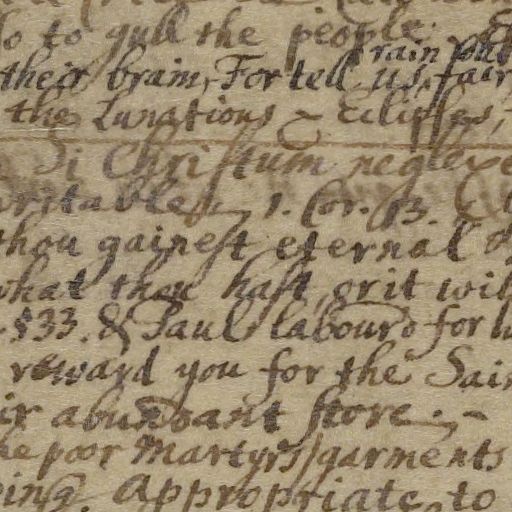 to gull the people.
rain
their brain, For tell us, fair
the Lunations ~ Eclipses,
Si Christum neglexe
1. Cor. 13.
thou gainest eternal
what thou hast, or it wil
.§33. & Paul labour'd for
reward you for the Sain
ir abundant store.
he poor Martyrs garments
ing. Appropriate to